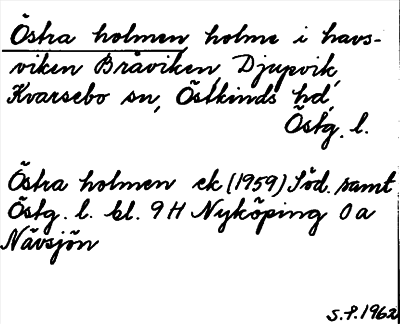 Östra holmen, holme i havs-
viken Bråviken, Djupvik,
Kvarsebo sn, Östkinds hd,
Östg. l.
Östra holmen ek (1959) Söd. samt
Östg. l. bl. 9H Nyköping 0a
Nävsjön
S.P. 1962